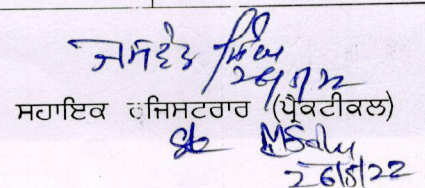 ਜਸਵੰਤ ਸਿੰਘ
26/5/22
ਸਹਾਇਕ ਰਜਿਸਟਰਾਰ (ਪ੍ਰੈਕਟੀਕਲ)
26/5/22